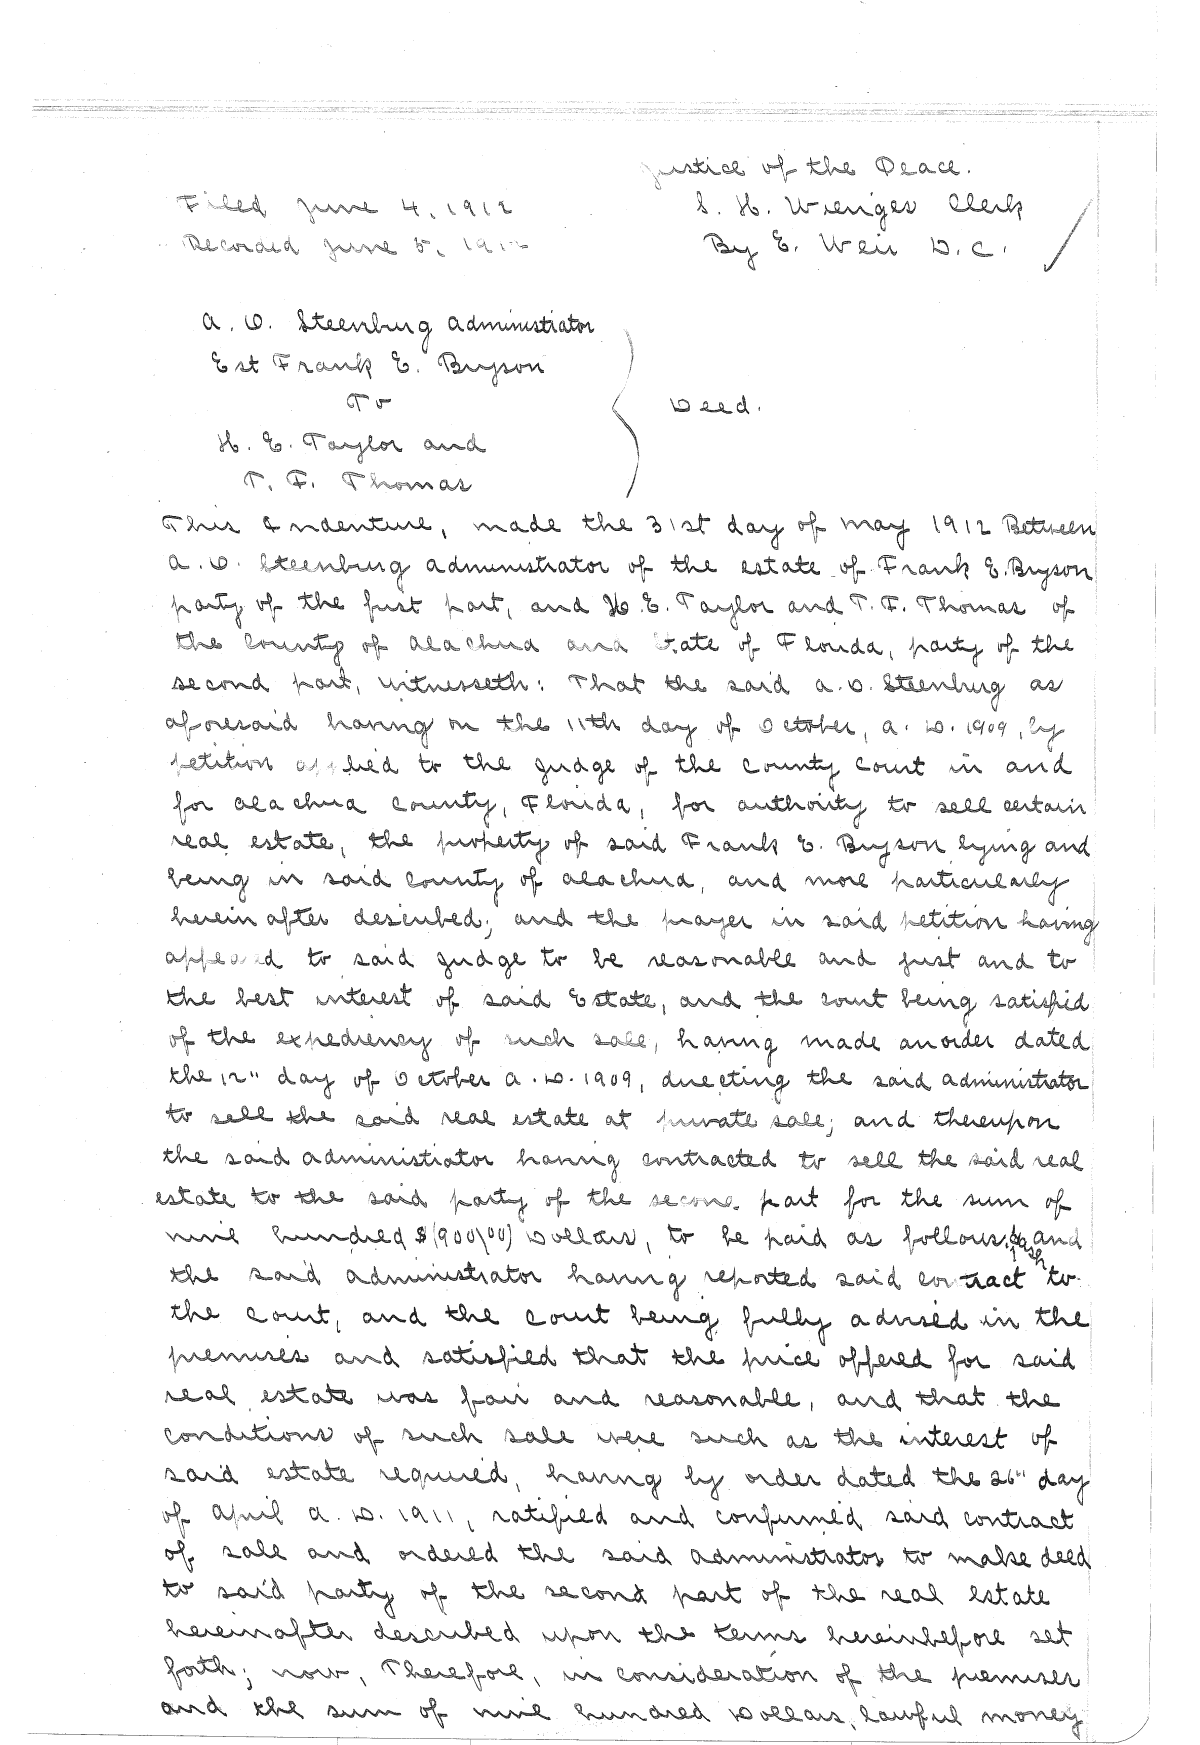 Justice of the Peace.
Filed June 4, 1912
S. H. Wienges Clerk
Recorded June 5, 1912
By E. Weir D.C.
A. O. Steenburg Administrator
Est Frank E. Bryson
To
Deed.
H. E. Taylor and
T. F. Thomas
This Indenture, made the 31st day of May 1912 Between
A. O. Steenburg administrator of the estate of Frank E. Bryson
party of the first part, and H. E. Taylor and T. F. Thomas of
the County of Alachua and State of Florida, party of the
second part, witnesseth: That the said A. O. Steenburg as
aforesaid having on the 11th day of October, A. D. 1909, by
petition applied to the Judge of the County Court in and
for Alachua County, Florida, for authority to sell certain
real estate, the property of said Frank E. Bryson lying and
being in said County of Alachua, and more particularly
herein after described; and the prayer in said petition having
appeared to said Judge to be reasonable and just and to
the best interest of said Estate, and the court being satisfied
of the expediency of such sale, having made an order dated
the 12" day of October A. D. 1909, directing the said administrator
to sell the said real estate at private sale; and thereupon
the said administrator having contracted to sell the said real
estate to the said party of the second part for the sum of
nine hundred $(900\00) Dollars, to be paid as follows: Cash and
the said administrator having reported said contract to
the Court, and the Court being fully advised in the
premises and satisfied that the price offered for said
real estate was fair and reasonable, and that the
conditions of such sale were such as the interest of
said estate required, having by order dated the 26" day
of April A. D. 1911, ratified and confirmed said contract
of sale and ordered the said administrator to make deed
to said party of the second part of the real estate
hereinafter described upon the terms hereinbefore set
forth; now, Therefore, in consideration of the premises
and the sum of nine hundred Dollars, lawful money